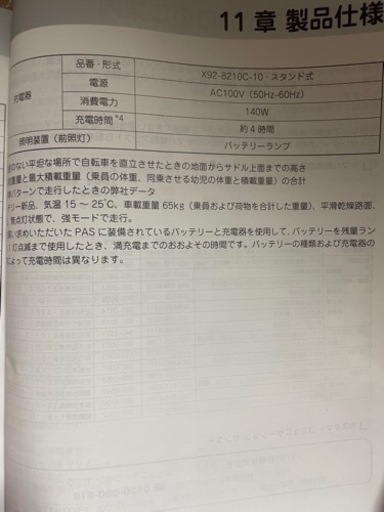 11 章 製品仕様
充電器
品番・形式 X92-8210C-10・スタンド式
電源 AC100V (50Hz-60Hz)
消費電力 140W
充電時間*4 約 4 時間
照明装置（前照灯） バッテリーランプ
のない平坦な場所で自転車を直立させたときの地面からサドル上面までの高さ
重量と最大積載重量（乗員の体重、同乗させる幼児の体重と積載重量）の合計
パターンで走行したときの弊社データ
テリー新品、気温 15 ～ 25℃、車載重量 65kg（乗員および荷物を合計した重量）、平滑乾燥路面、
無点灯状態で、強モードで走行。
買い求めいただいた PAS に装備されているバッテリーと充電器を使用して、バッテリーを残量ラン
灯点滅まで使用したとき、満充電までのおおよその時間です。バッテリーの種類および充電器の
よって充電時間は異なります。